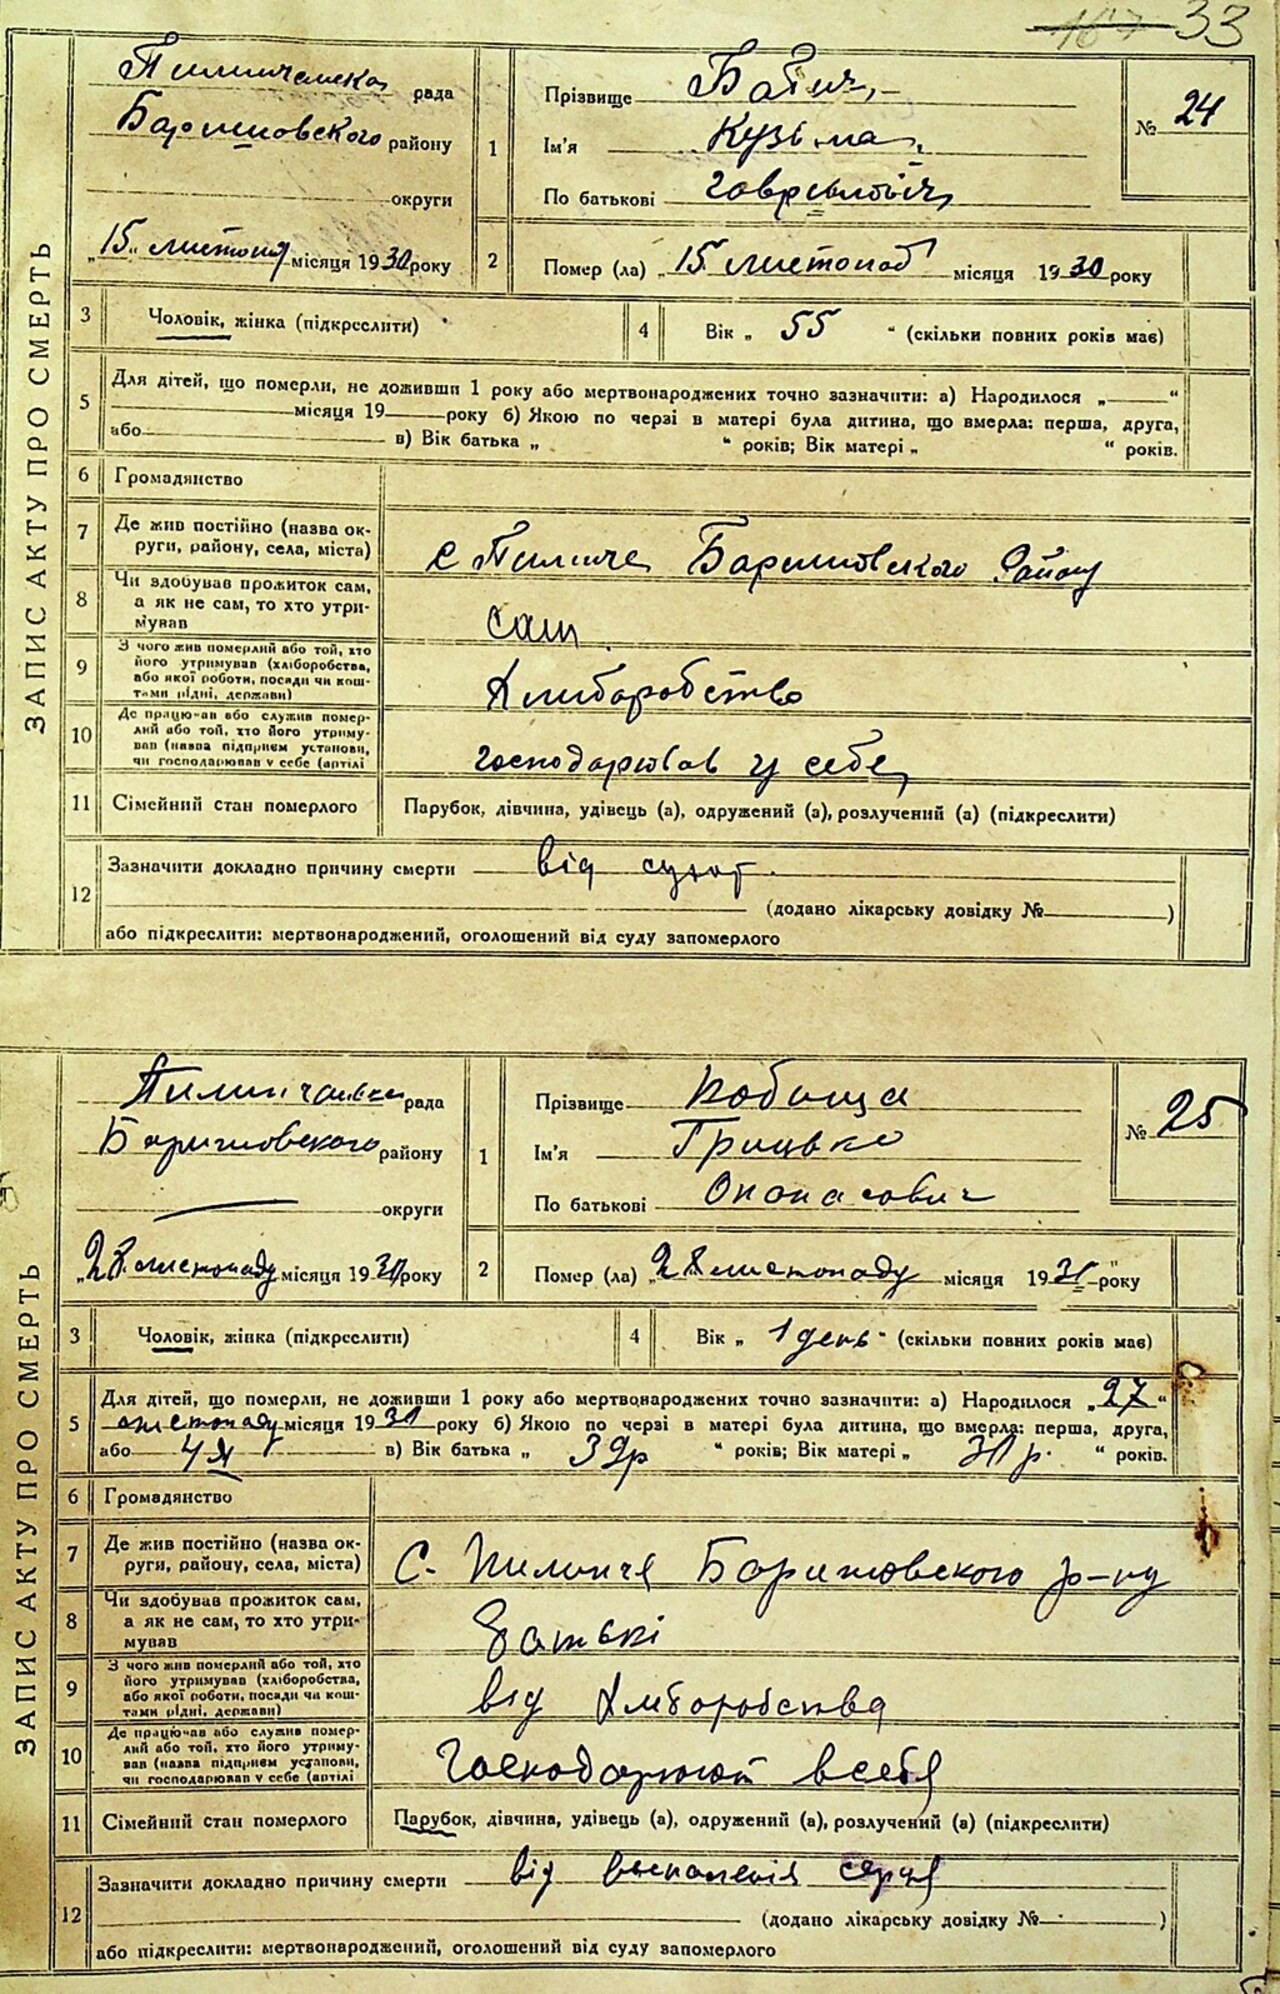 167 33
ЗАПИС АКТУ ПРО СМЕРТЬ
Пилипчанська рада
Баришовського району
округи
„15“ листопад місяця 1930 року
1
Прізвище
Кузьма
Ім'я
По батькові Гаврилович
№ 24
2 Помер (ла) „15 листопад місяця 1930 року
3 Чоловік, жінка (підкреслити)
4 Вік „ 55 “ (скільки повних років має)
5 Для дітей, що померли, не доживши 1 року або мертвонароджених точно зазначити: а) Народилося „ “
місяця 19 року б) Якою по черзі в матері була дитина, що вмерла: перша, друга,
або в) Вік батька „ “ років; Вік матері „ “ років.
6 Громадянство
7 Де жив постійно (назва ок-
руги, району, села, міста) с Пилипче Баришовського Району
8 Чи здобував прожиток сам,
а як не сам, то хто утри-
мував сам
9 З чого жив померлий або той, хто
його утримував (хліборобства,
або якої роботи, посади чи кош-
тами рідні, держави) Хлиборобство
10 Де працював або служив помер-
лий або той, хто його утриму-
вав (назва підприєм установи,
чи господарював у себе (артілі господарював у себе
11 Сімейний стан померлого Парубок, дівчина, удівець (а), одружений (а), розлучений (а) (підкреслити)
12 Зазначити докладно причину смерти від сухот
(додано лікарську довідку № )
або підкреслити: мертвонароджений, оголошений від суду запомерлого
ЗАПИС АКТУ ПРО СМЕРТЬ
Пилипчанська рада
Баришовського району
округи
„28 листопаду місяця 1930 року
1
Прізвище Кобища
Ім'я Грицько
По батькові Опанасович
№ 25
2 Помер (ла) „28 листопаду місяця 1930 року
3 Чоловік, жінка (підкреслити)
4 Вік „ 1 день “ (скільки повних років має)
5 Для дітей, що померли, не доживши 1 року або мертвонароджених точно зазначити: а) Народилося „27“
листопаду місяця 1930 року б) Якою по черзі в матері була дитина, що вмерла: перша, друга,
або 4я в) Вік батька „ 39р “ років; Вік матері „ р. “ років.
6 Громадянство
7 Де жив постійно (назва ок-
руги, району, села, міста) С. Пилипче Баришовського р-ну
8 Чи здобував прожиток сам,
а як не сам, то хто утри-
мував Батькі
9 З чого жив померлий або той, хто
його утримував (хліборобства,
або якої роботи, посади чи кош-
тами рідні, держави) від Хлиборобства
10 Де працював або служив помер-
лий або той, хто його утриму-
вав (назва підприєм установи,
чи господарював у себе (артілі Господарюют всебя
11 Сімейний стан померлого Парубок, дівчина, удівець (а), одружений (а), розлучений (а) (підкреслити)
12 Зазначити докладно причину смерти від
(додано лікарську довідку № )
або підкреслити: мертвонароджений, оголошений від суду запомерлого